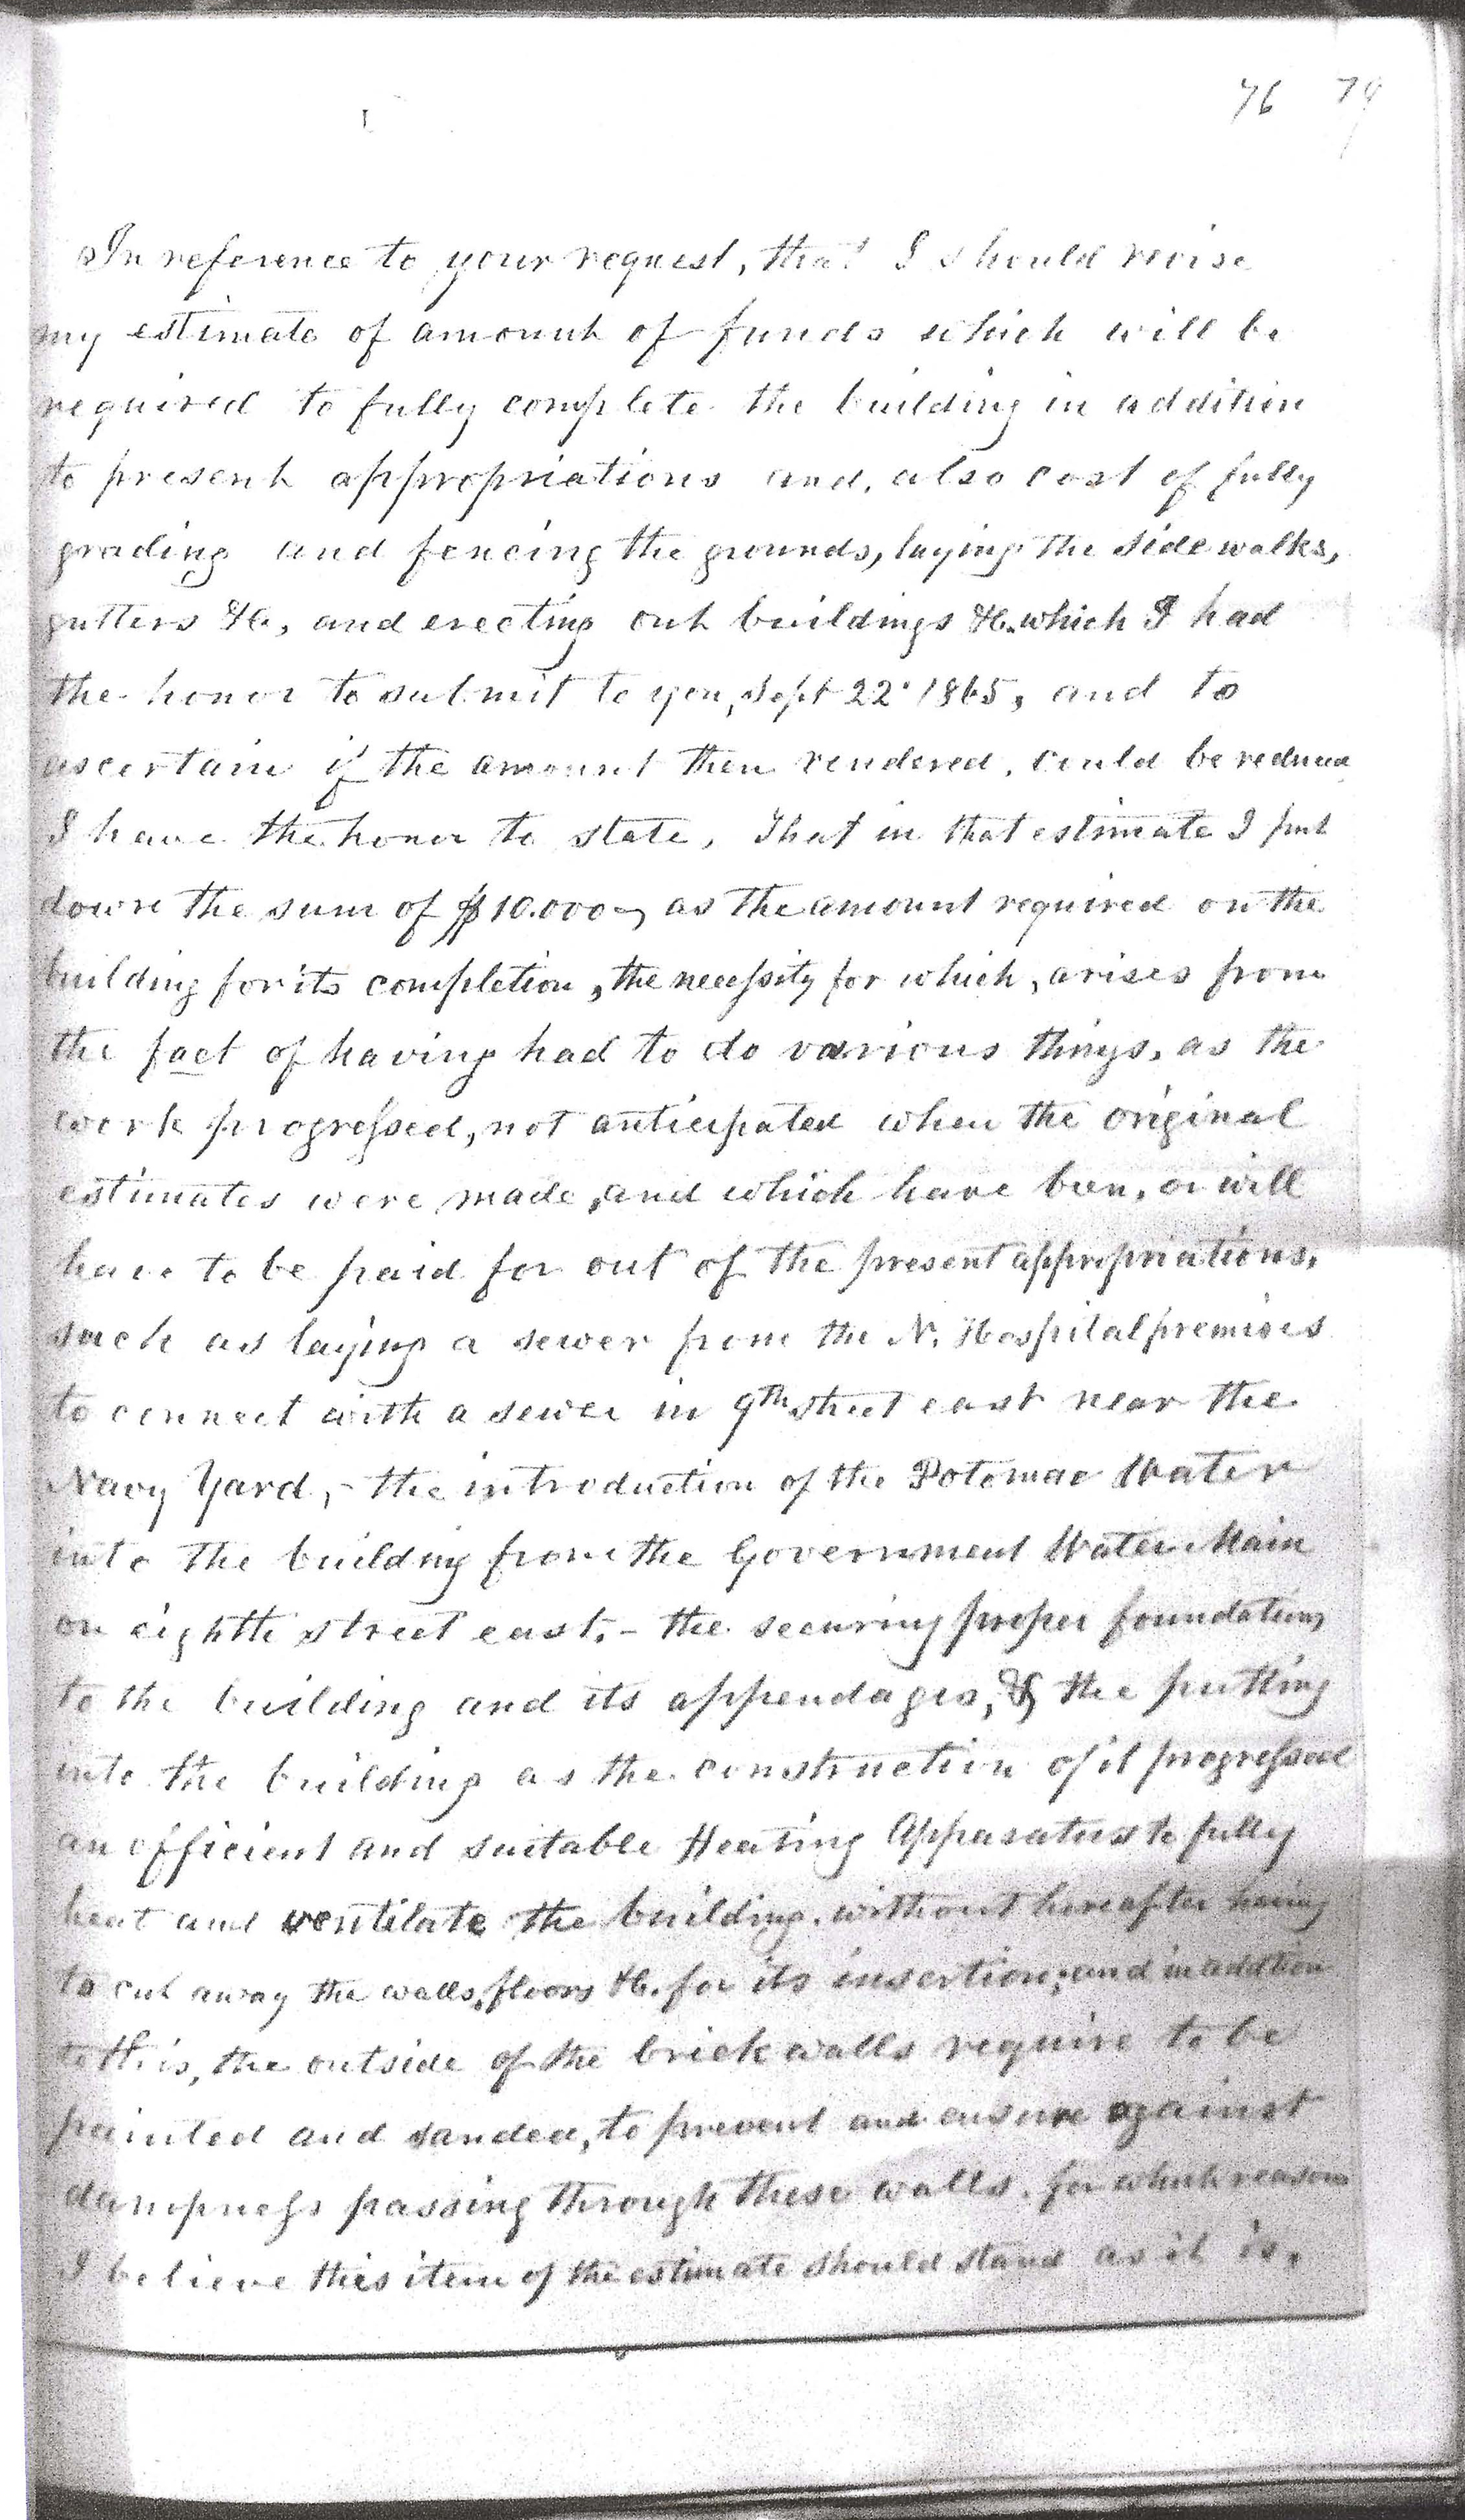 76 79
In reference to your request, that I should revise
my estimate of amount of funds which will be
required to fully complete the building in addition
to present appropriations and, also cost of fully
grading and fencing the grounds, laying the side walks,
gutters &c, and erecting out buildings &c. which I had
the honor to submit to you, Sept 22d 1865, and to
ascertain if the amount then rendered, could be reduced
I have the honor to state, That in that estimate I put
down the sum of $10.000 as the amount required on the
building for its completion, the necessity for which, arises from
the fact of having had to do various things, as the
work progressed, not anticipated when the original
estimates were made, and which have been, or will
have to be paid for out of the present appropriations,
such as laying a sewer from the N. Hospital premises
to connect with a sewer in 9th street east near the
Navy Yard, - the introduction of the Potomac Water
into the building from the Government Water Main
on eighth street east, - the securing proper foundations
to the building and its appendages, & the putting
into the building as the construction of it progressed
an efficient and suitable Heating Apparatus to fully
heat and ventilate the building, without hereafter having
to cut away the walls, floors &c. for its insertion; and in addition
to this, the outside of the brick walls require to be
painted and sanded, to prevent and ensure against
dampness passing through these walls. for which reasons
I believe this item of the estimate should stand as it is.